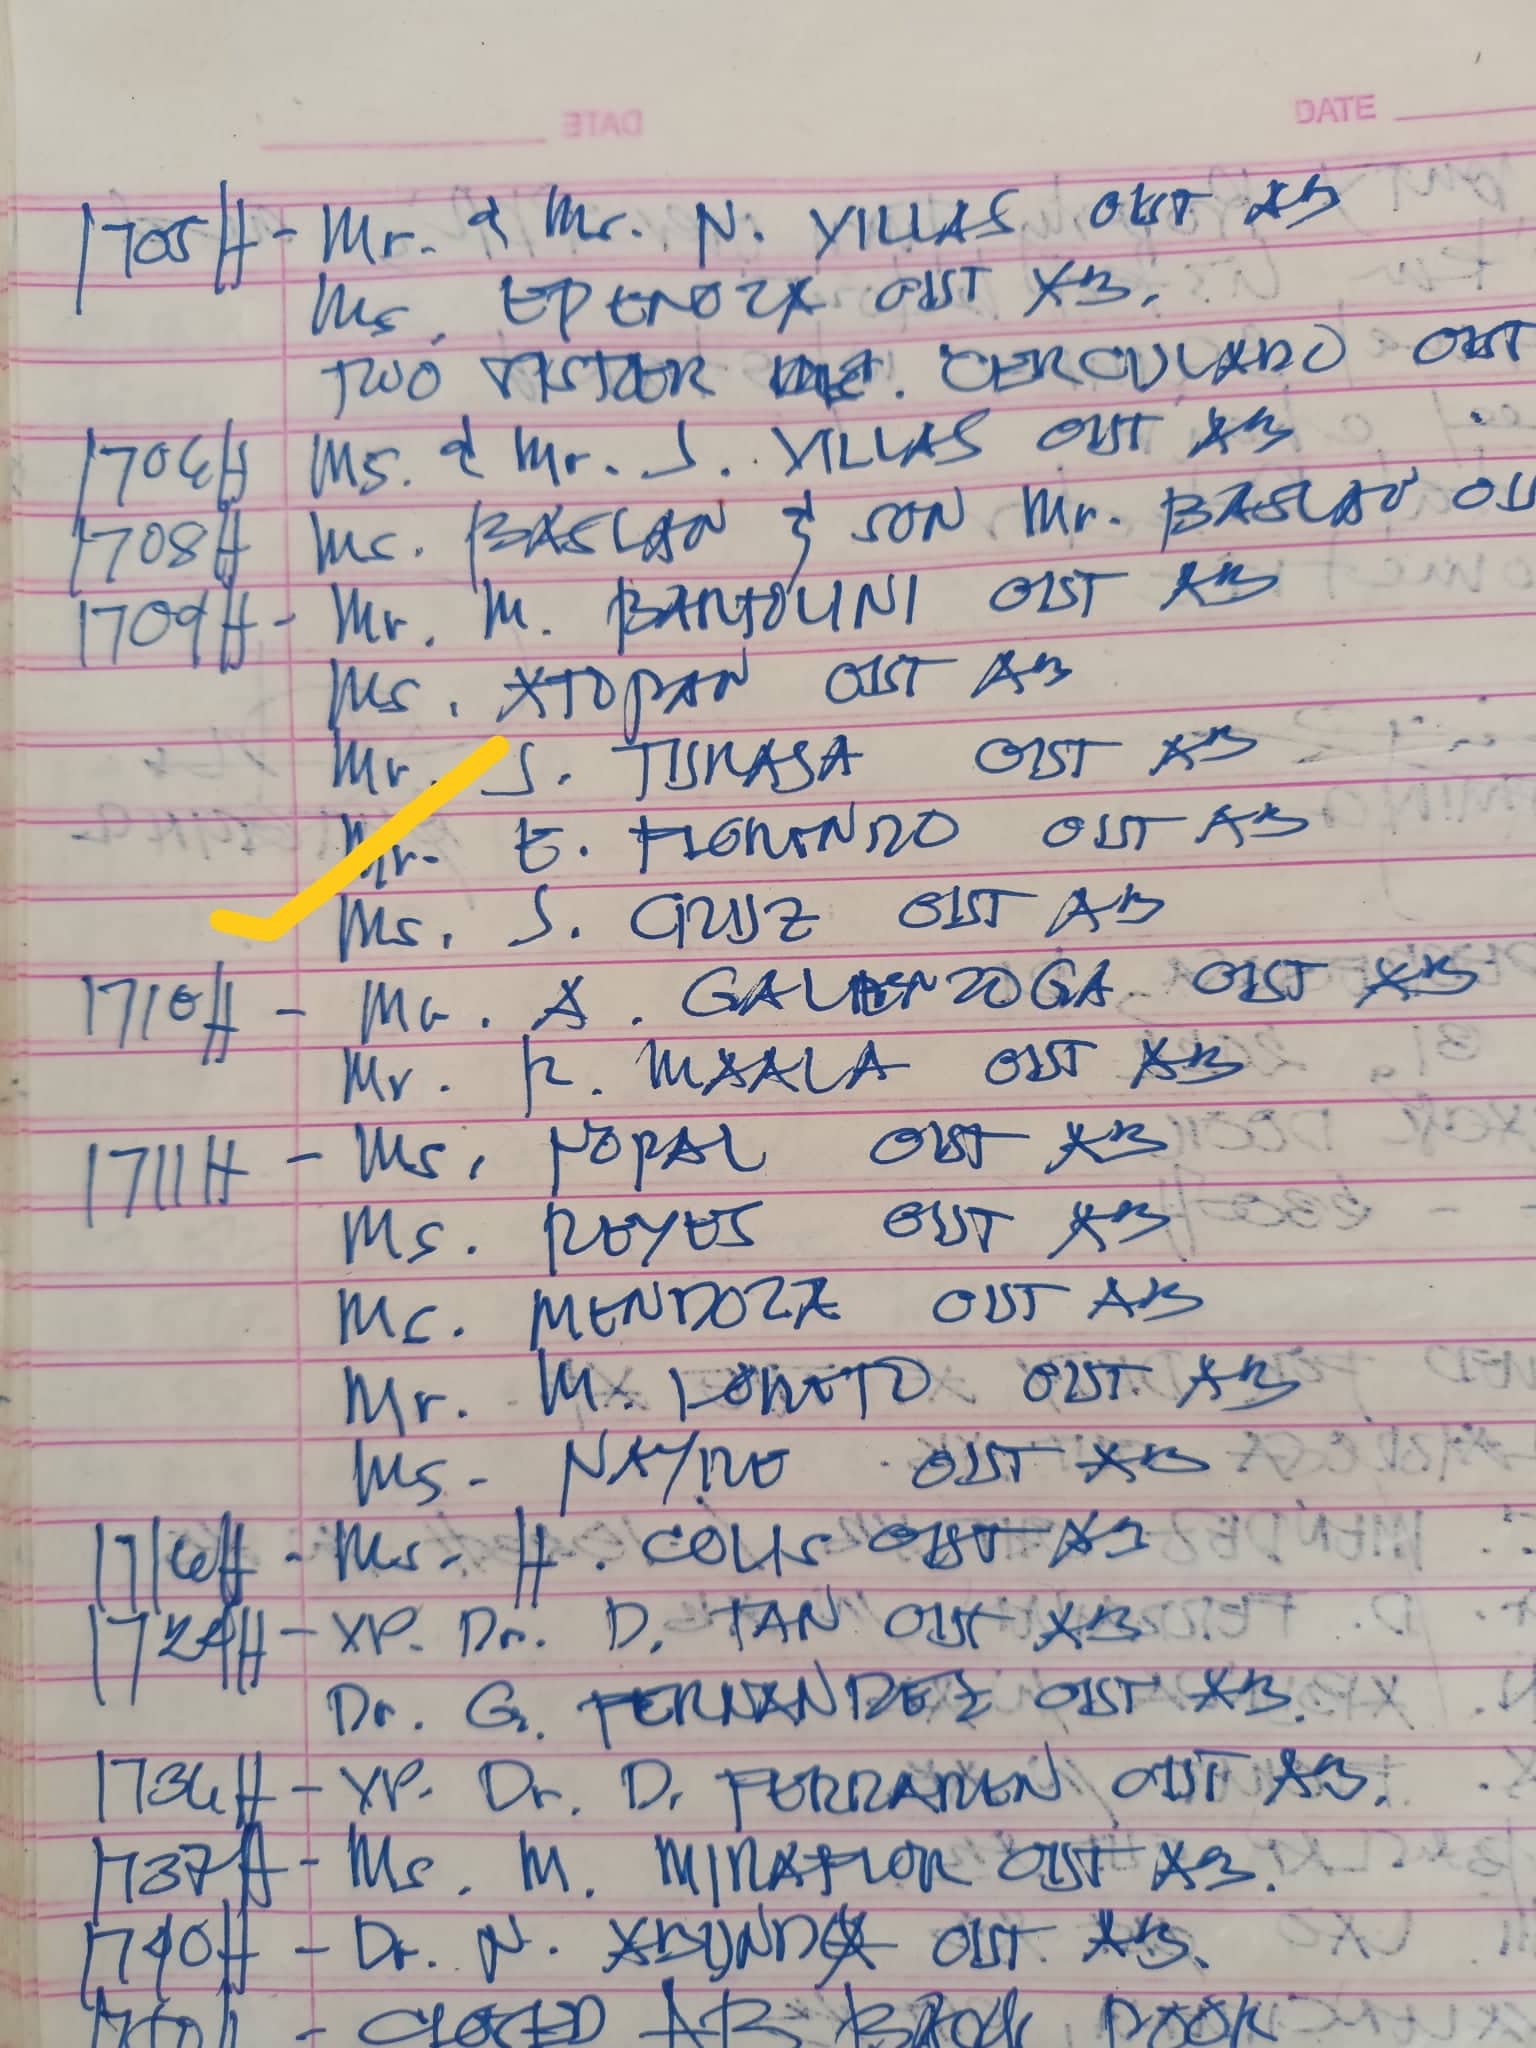 DATE
1705H - Mr. & Mr. N. VILLAS OUT AB
Ms. EPENOZA OUT AB.
TWO VISITOR CERCULADO OUT
1706H Ms. & Mr. J. VILLAS OUT AB
1708H Ms. BASLAN & SON Mr. BASLAN OU
1709H - Mr. M. BANTOLINI OUT AB
Ms. ATOPAN OUT AB
Mr. J. OUT AB
Mr. E. FLORENDO OUT AB
Ms. J. CRUZ OUT AB
1710H - A. OUT AB
Mr. R. MAALA OUT AB
1711H - Ms. NOPAL OUT AB
Ms. REYES OUT AB
Ms. MENDOZA OUT AB
Mr. M. LORETO OUT AB
Ms. NAYRE OUT AB
1716H - Ms. H. COLIS OUT AB
1724H - VP. Dr. D. TAN OUT AB
Dr. G. FERNANDEZ OUT AB.
1736H - VP. Dr. D. FERRAREN OUT AB.
1737H - Ms. M. MIRAFLOR OUT AB.
1740H - Dr. N. ABUNDA OUT AB.
- CLOSED AB BACK DOOR